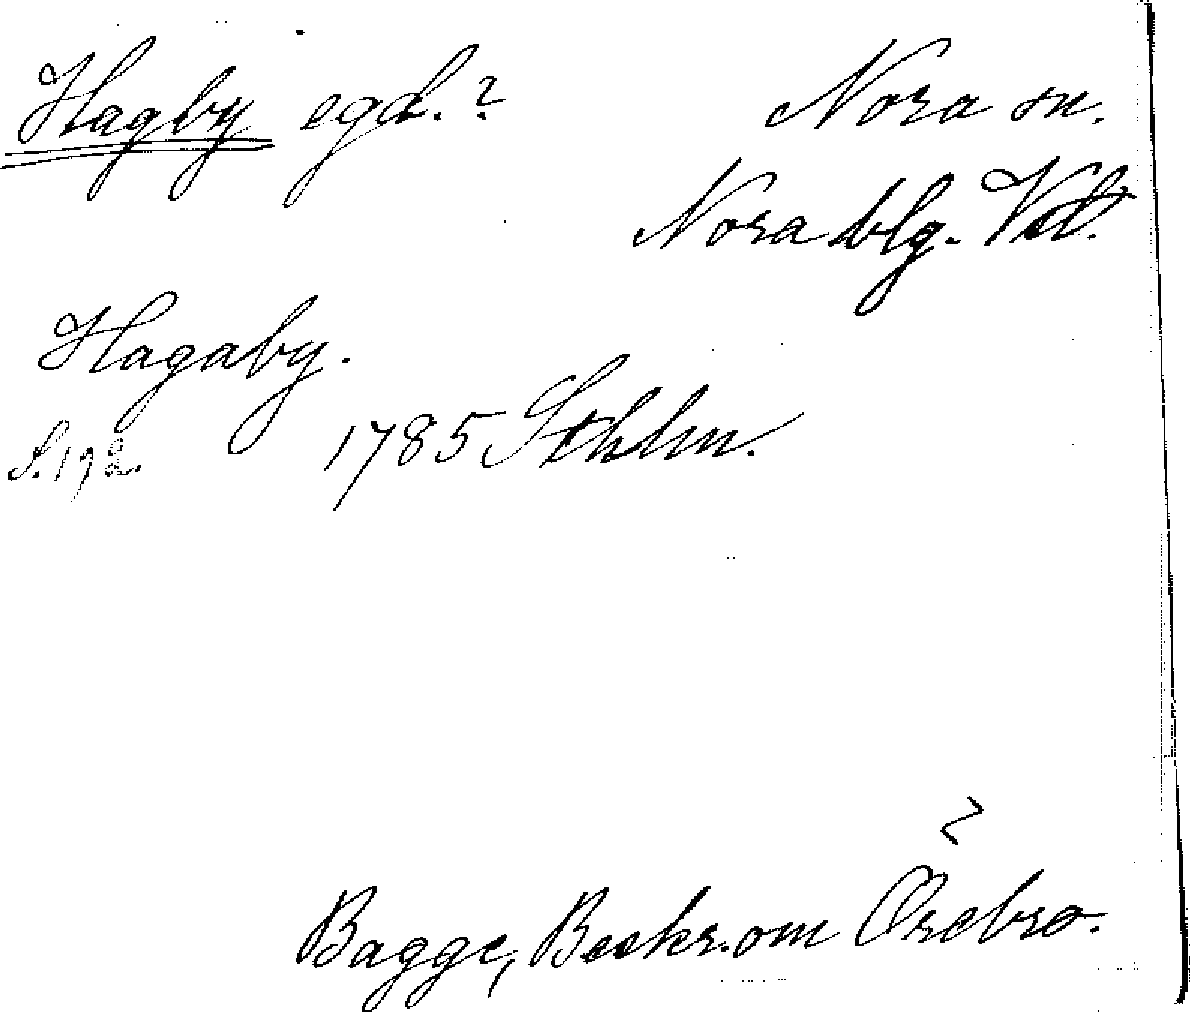 Hagby egd.? Nora sn.
Nora blg. Vstl.
Hagaby.
S. 192. 1785 Sthlm.
Bagge, Beskr. om Örebro.